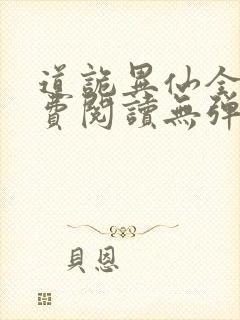 道詭異仙全
費閱讀無彈
貝恩